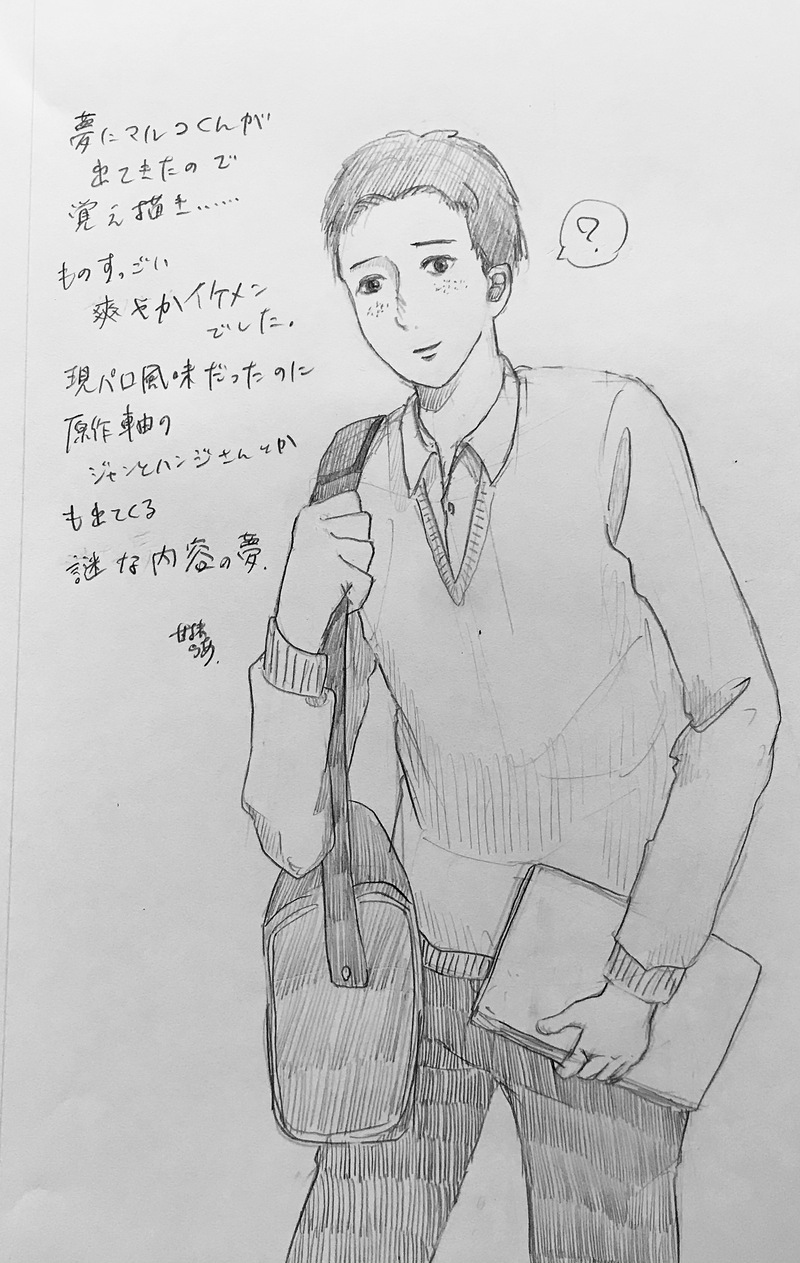 夢にマルコくんが
出てきたので
覚え描き……
ものすっごい
爽やかイケメン
でした。
現パロ風味だったのに
原作軸の
ジャンとハンジさんとか
も出てくる
謎な内容の夢.
?